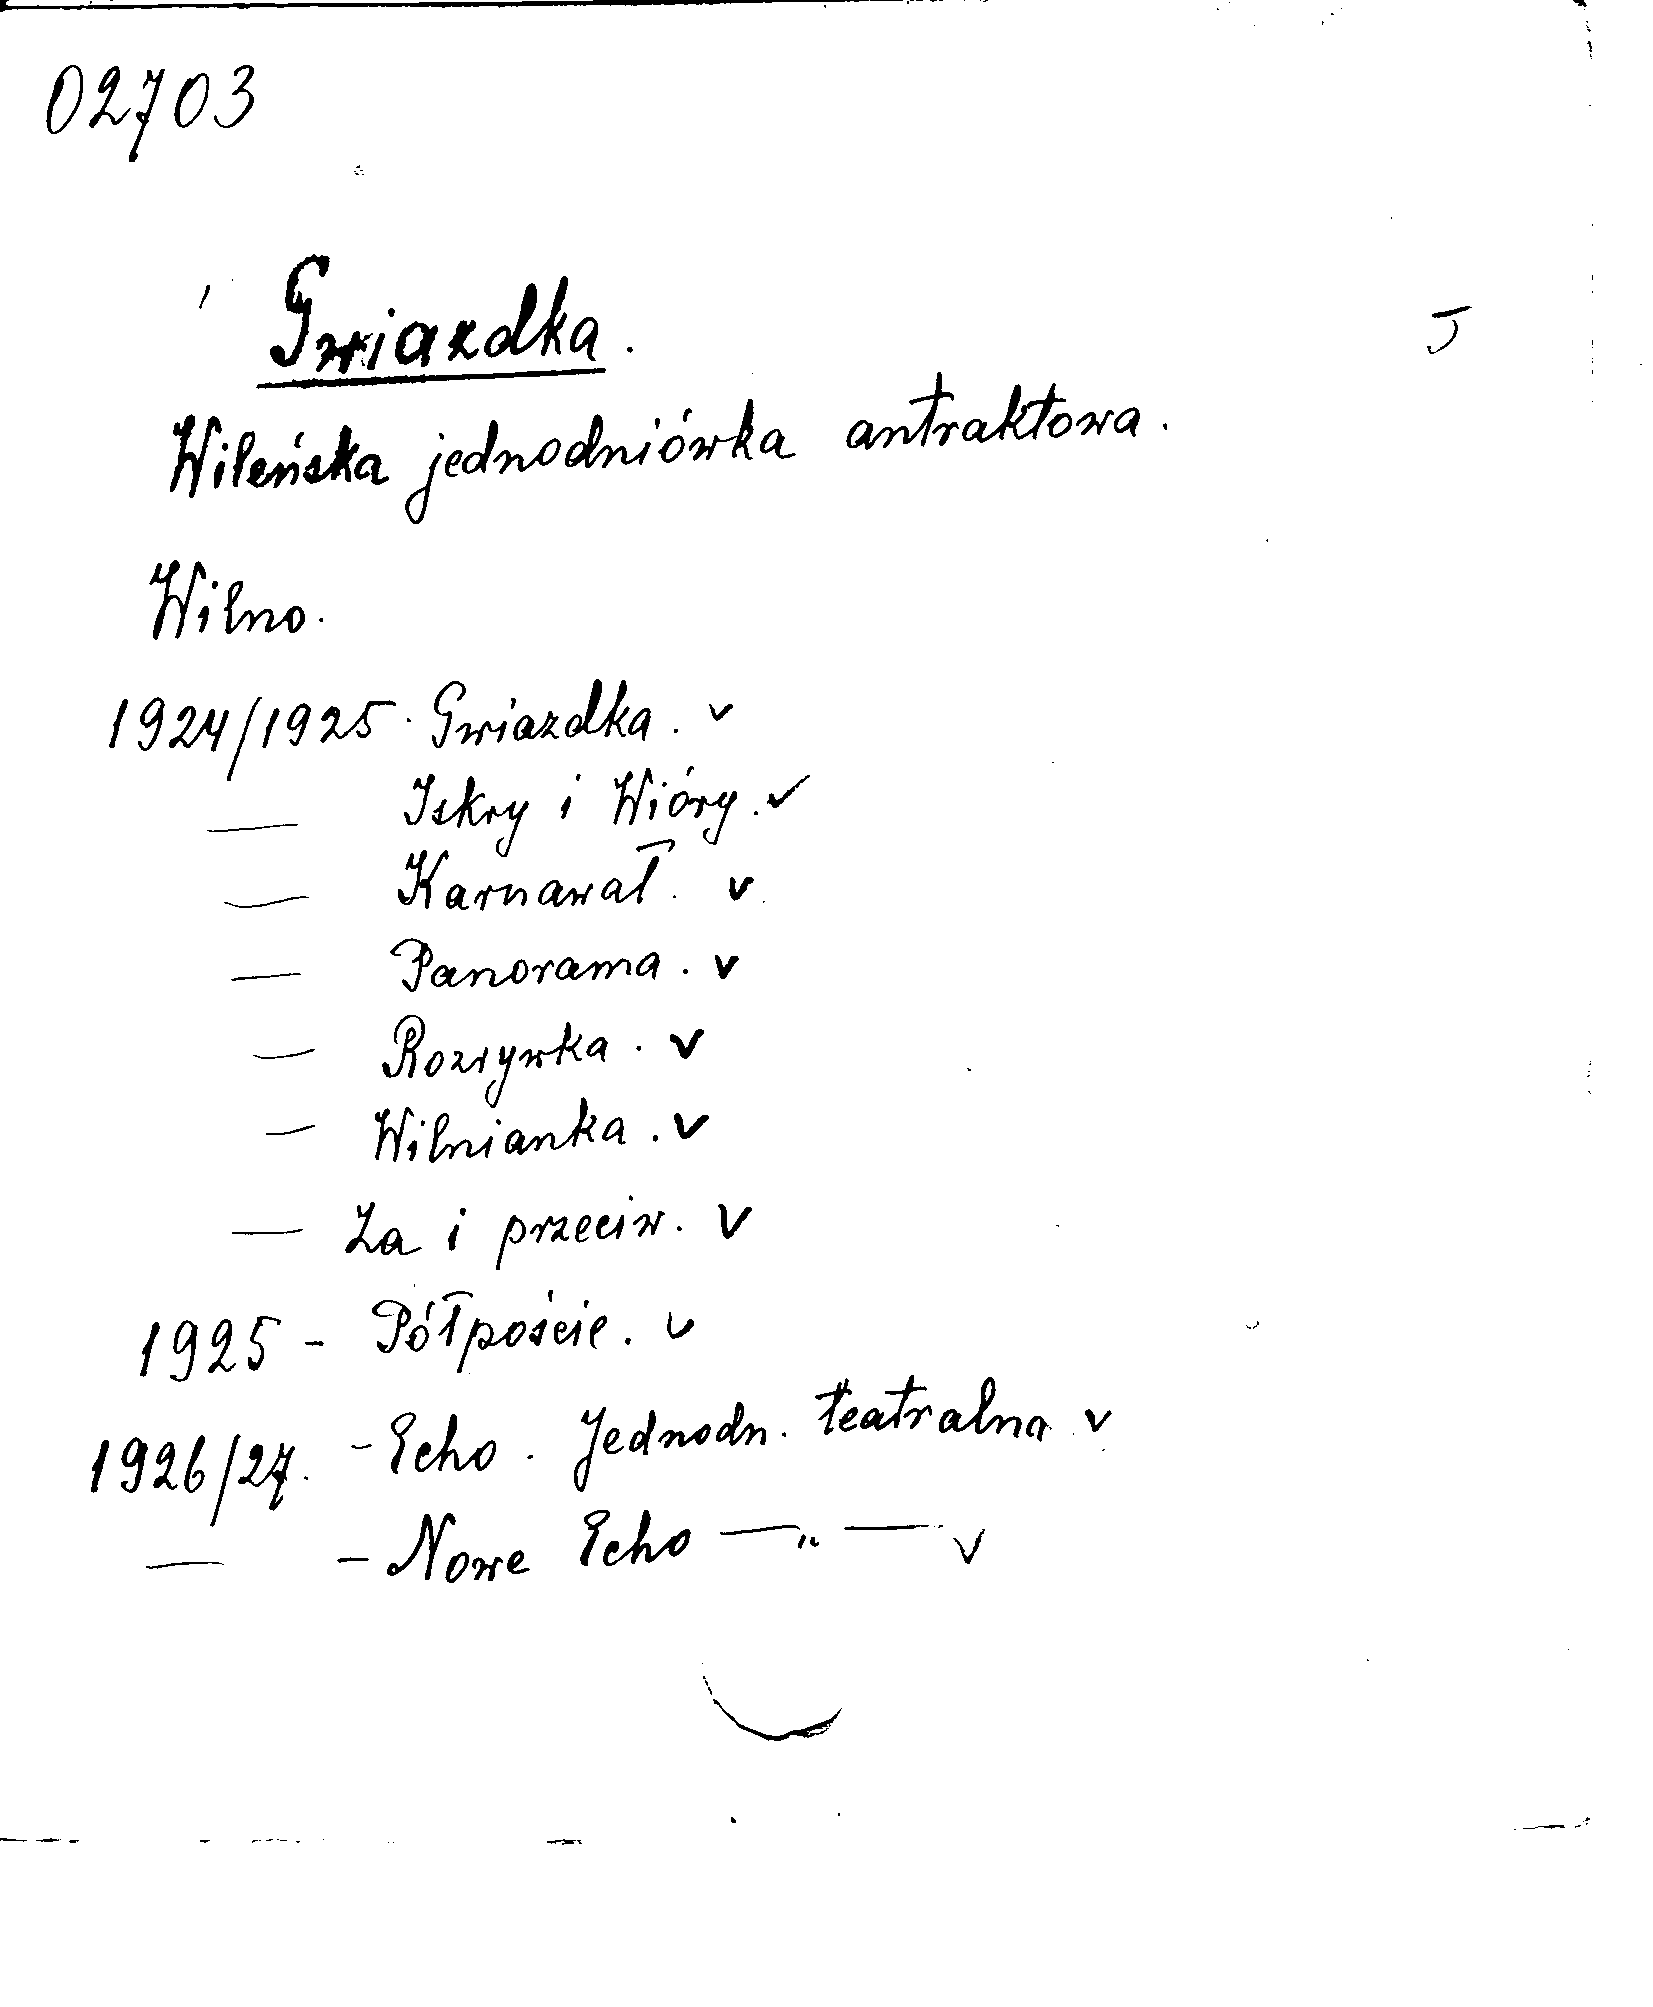 02703
Gwiazdka.
J
Wileńska jednodniówka antraktowa.
Wilno.
1924/1925. Gwiazdka. v
— Iskry i Wióry. v
— Karnawał. v
— Panorama. v
— Rozrywka. v
— Wilnianka. v
— Za i przeciw. v
1925 - Półpoście. v
1926/27. - Echo. Jednodn. teatralna v
— - Nowe Echo —„— v